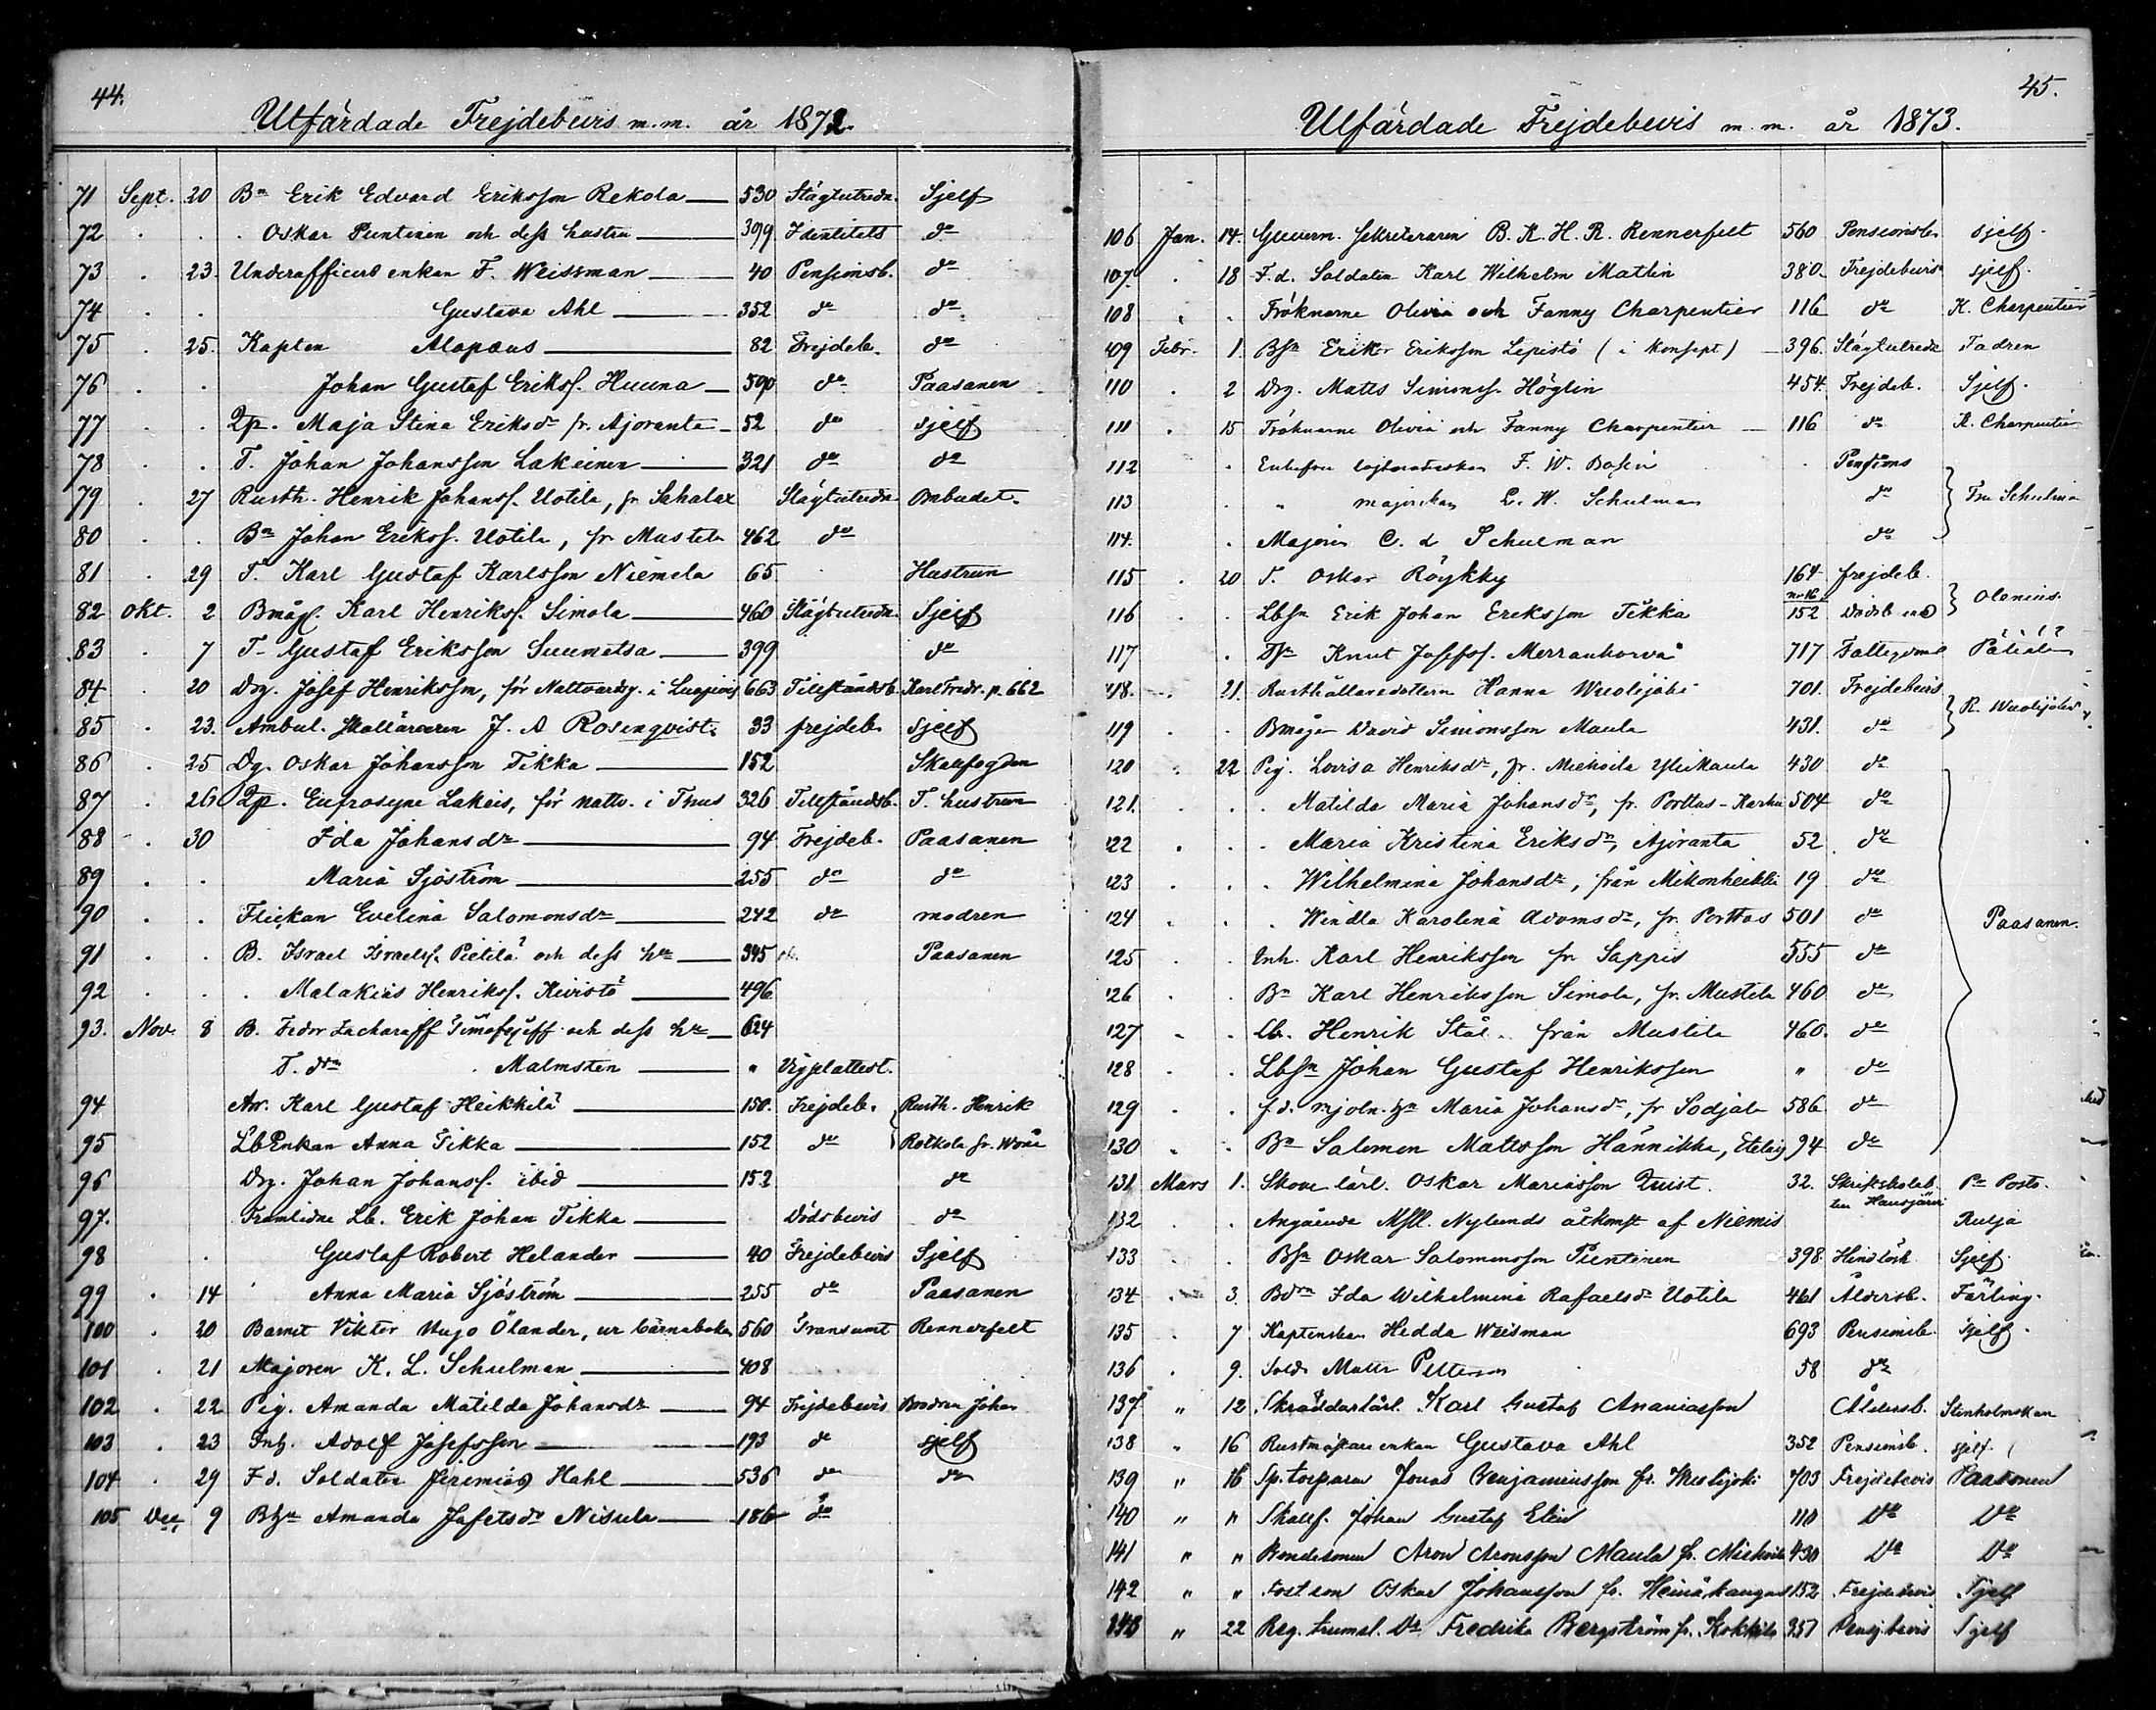 44.
Utfärdade Frejdebevis m.m. år 1872.
71 Sept. 20 Bn Erik Edvard Eriksson Rekola 530 Slägtutredn. Sjelf
72 . . . Oskar Puntinen och dess hustru 399 Identitets do
73 . 23. Underofficers enkan F. Weissman 40 Pensionsb. do
74 . . Gustava Ahl 352 do do
75 . 25. Kapten Alopæus 82 Frejdeb. do
76 . . Johan Gustaf Erikss. Huuna 590 do Paasanen
77 . . Qp. Maja Stina Eriksdr fr. Ajoranta 52 do sjelf
78 . . T. Johan Johansson Lakeinen 321 do do
79 . 27 Rusth. Henrik Johanss. Uotila, fr Sahalax Slägtutredn. Ombudet.
80 . . Bn Johan Erikss. Uotila, fr. Mustila 462 do
81 . 29 T. Karl Gustaf Karlsson Niemela 65 Hustrun
82 Okt. 2 Bmåg. Karl Henrikss. Simola 460 Slägtutredn. Sjelf
83 . 7 T. Gustaf Eriksson Suumetsa 399 do
84 . 20 Drg. Josef Henriksson, för Nattvardsg. i Luopiois 663 Tillståndsb. Karl Fredr. p. 662
85 . 23. Ambul. Skolläraren J. A Rosenqvist. 33 frejdeb. sjelf
86 . 25 Dg. Oskar Johansson Tikka 152 Skallfogden
87 . 26 Qp. Eufrosyne Lakeis, för nattv. i Thus 326 Tillståndsb. T. hustrun
88 . 30 Ida Johansdr 94 Frejdeb. Paasanen
89 . . Maria Sjöström 255 do do
90 . . Flickan Evelina Salomonsdr 242 do modren
91 . . B. Israel Israelss. Pietilä och dess hu 345 Paasanen
92 . . . Malakias Henrikss. Kivistö 496
93. Nov. 8 B. Fedor Zacharoff Timofejeff och dess hu 624
T. dr Malmsten " Vigselattest.
94 Arr. Karl Gustaf Heikkilä 150. Frejdeb. Rusth. Henrik
95 LbEnkan Anna Tikka 152 do Rotkola fr. Wonå
96 Drg. Johan Johanss. ibid 152 do
97. Framlidne Lb. Erik Johan Tikka Dödsbevis do
98 . Gustaf Robert Helander 40 Frejdebevis Sjelf
99 . 14 Anna Maria Sjöström 255 do Paasanen
100 . 20 Barnet Viktor Hugo Ölander, ur barnaboken 560 Transumt Rennerfelt
101 . 21 Majoren K. L. Schulman 408
102 . 22 Pig. Amanda Matilda Johansdr 94 Frejdebevis Brodren Johan
103 . 23 Inh. Adolf Josefsson 193 do sjelf
104 . 29 Fd. Soldaten Jeremias Hahl 536 do do
105 Dec. 9 Bhu Amanda Jafetsdr Nisula 186 do
45.
Utfärdade Frejdebevis m. m. år 1873.
106 Jan. 14. Guvern. sekreteraren B. K. H. R. Rennerfelt 560 Pensionsb. sjelf.
107. . 18 F. d. Soldaten Karl Wilhelm Matlin 380. Frejdebevis sjelf.
108 . . Fröknarne Olivia och Fanny Charpentier 116 do K. Charpentier
109 Febr. 1 Bsn Erik Eriksson Lepistö (i konsept) 396. Slägtutredn Fadren
110 . 2 Drg. Matts Simonss. Höglin 454. Frejdeb. Sjelf.
111 . 15 Fröknarne Olivia och Fanny Charpentier 116 do K. Charpentier
112 . Enkefru löjtnantskan F. W. Pensions
113 . " majorskan L. W. Schulman do Fru Schulman
114. . Majoren C. L Schulman do
115 . 20 T. Oskar Röykky 164 frejdeb.
116 . . Lbsn Erik Johan Eriksson Tikka 152 Dödsb Olenius.
117 . Dsn Knut Josefss. Merrankorva 717 Pätiälä
118. . 21. Rusthållaredottern Hanna Wuolijoki 701. Frejdebevis
119 . . Bmåg David Simonsson Maula 431. do R. Wuolijoki
120 . 22 Pig. Lovisa Henriksdr, fr. Mickoila Ylikaula 430 do
121. . . . Matilda Maria Johansdr, fr. Porttas-Karhu 504 do
122 . . . Maria Kristina Eriksdr, Ajoranta 52 do
123 . . . Wilhelmina Johansdr, från Mikonheikkilä 19 do
124 . . . Windla Karolina Adamsdr, fr. Porttas 501 do Paasanen.
125 . . Inh. Karl Henriksson fr Sappis 555 do
126 . . Bn Karl Henriksson Simola, fr. Mustila 460 do
127 . . Lb. Henrik Stål. från Mustila 460. do
128 . . Lbsn Johan Gustaf Henriksson " do
129 . . f. d. mjöln. hu Maria Johansdr, fr Sodjala 586 do
130 . . Bn Salomon Mattsson Hännikkä, Eteläis 94 do
131 Mars 1. Skom lärl. Oskar Mariasson Quist. 32. Skriftskoleb. Pr Posto.
till Hausjärvi
132 . . Angående Msll. Nylunds åtkomst af Niemis Rulja
133 . . Bsn Oskar Salomonsson Pientinen 398 Hinderlösh. Sjelf
134 . 3. Bdr Ida Wilhelmina Rafaelsdr Uotila 461 Åldersb. Färling.
135 . 7 Kaptenskan Hedda Weisman 693 Pensionsb. Sjelf.
136 . 9. Sold. Matts Petterson 58 do
137 " 12 Skräddarlärl. Karl Gustaf Ananiasson Åldersb. Stenholmskan
138 " 16 Rustmästare enkan Gustava Ahl 352 Pensionsb. sjelf.
139 " 16 Sp. torparen Jonas Benjaminsson fr. Wuolijoki 703 Frejdebevis Paasonen
140 " " Skallf. Johan Gustaf Elin 110 Do Do
141 " " Bondesonen Aron Aronsson Maula fr. Mickoila 430 Do Do
142 " " Fost.son Oskar Johansson fr. Heinäkangas 152 Frejdebevis Sjelf
143 " 22 Reg. trumsl. Dr Fredrika Bergström fr. Kokkila 357 Pensj.bevis Sjelf